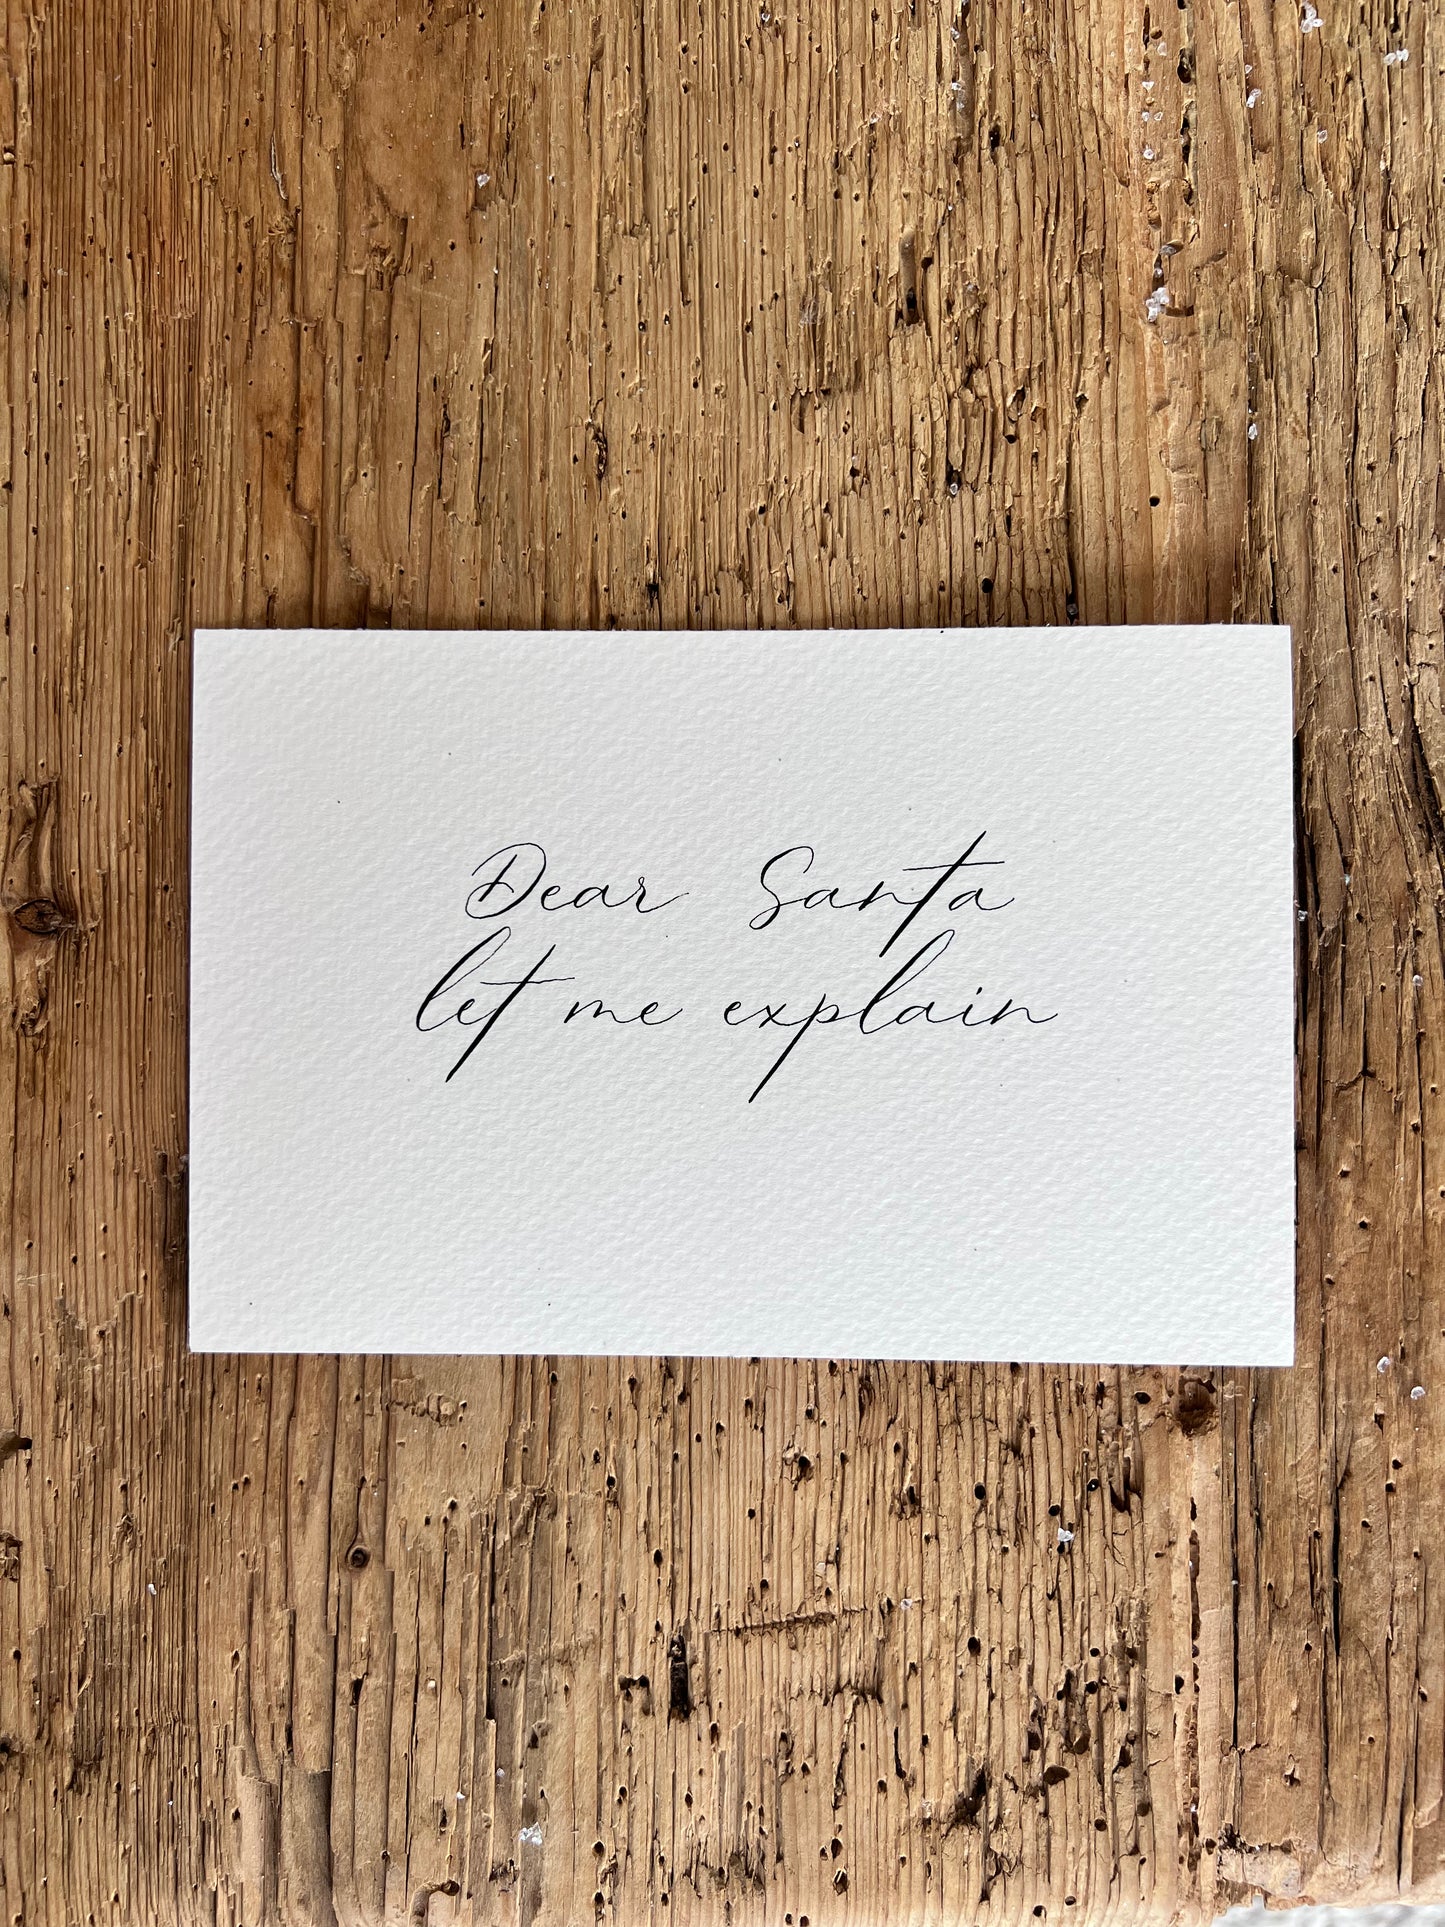 Dear Santa
let me explain